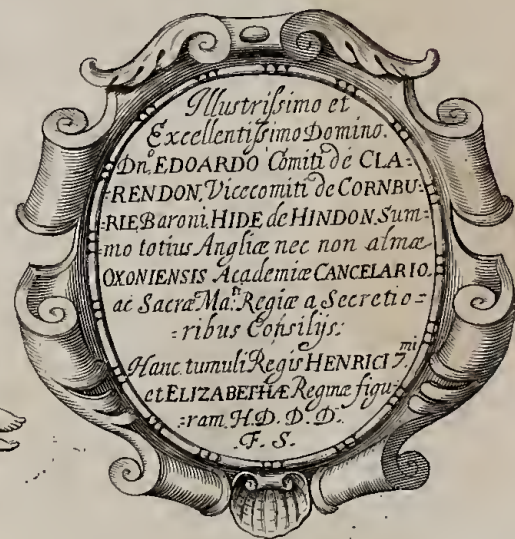 Illustrißimo et
Excellentißimo Domino.
Dn̊. EDOARDO Comiti de CLA=
=RENDON, Vicecomiti de CORNBU=
=RIE, Baroni, HIDE de HINDON, Sum=
mo totius Angliæ nec non almæ
OXONIENSIS Academiæ CANCELARIO.
ac Sacræ Ma:ti Regiæ a Secretio=
=ribus Consilijs:
Hanc tumuli Regis HENRICI 7.mi
et ELIZABETHÆ Reginæ figu=
=ram. H. D. D. D.
F. S.